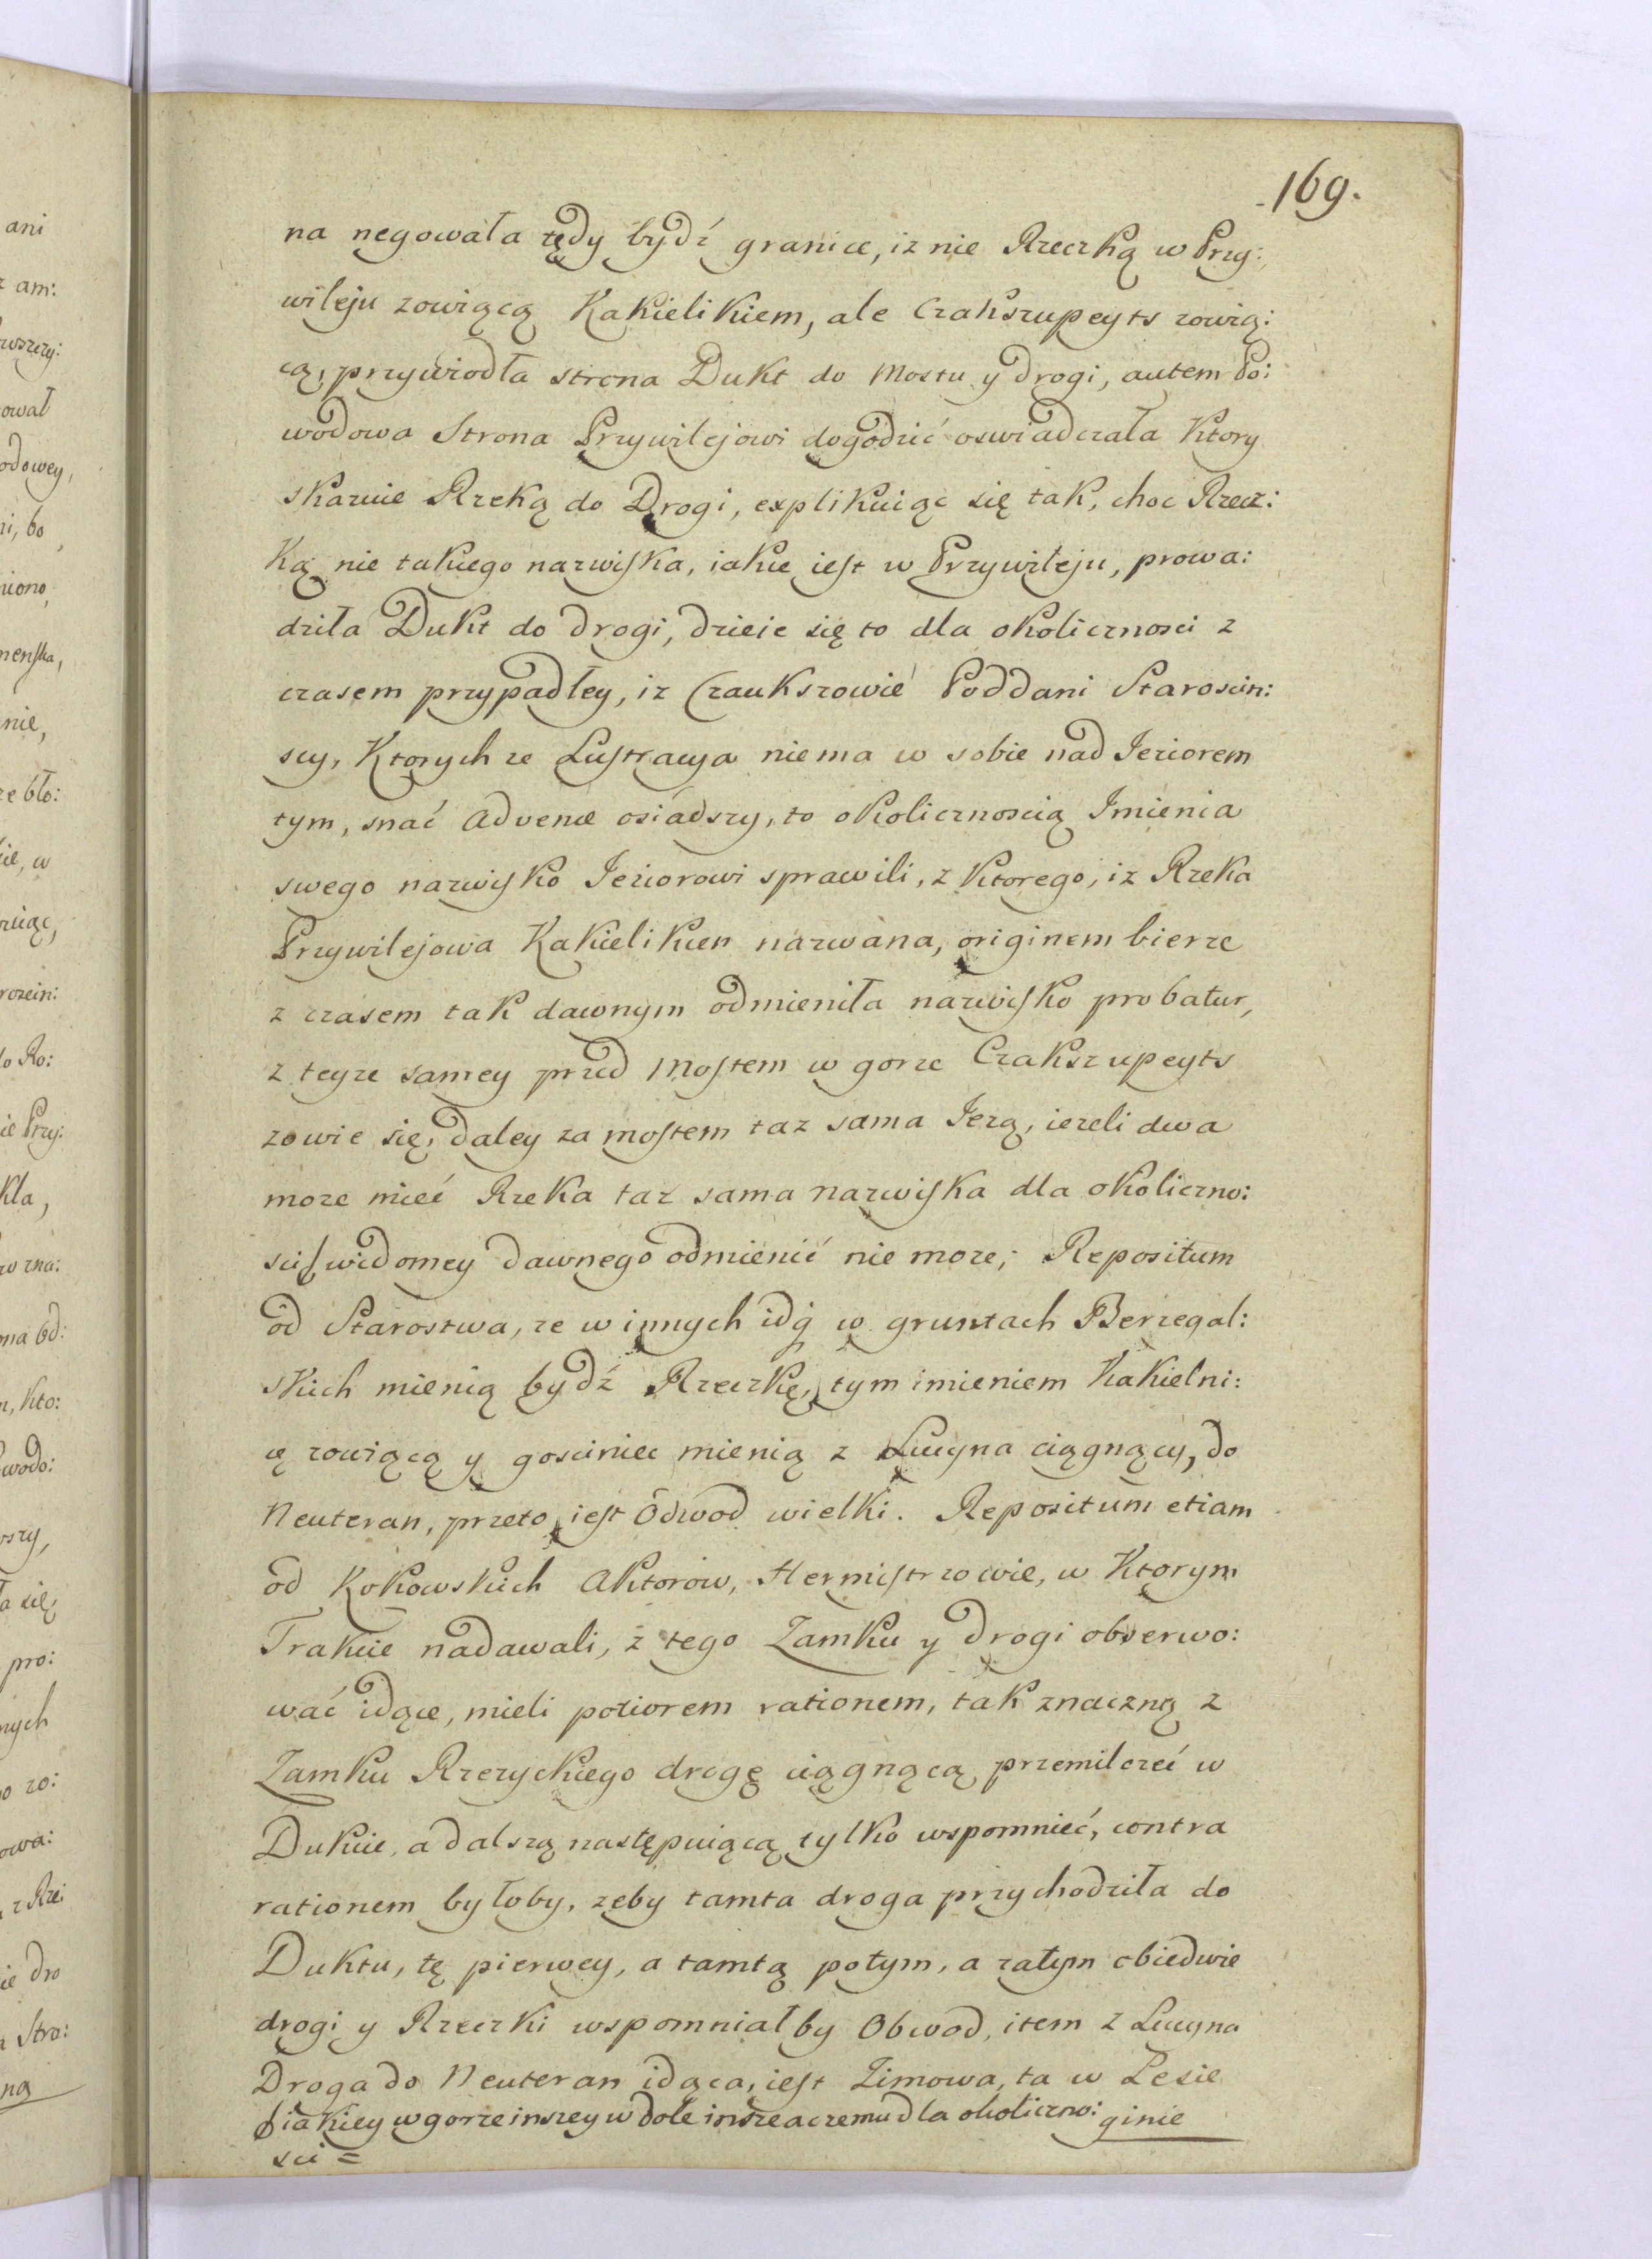 169.
na negowała tędy bydź granice, iz nie Rzeczką w Przy:
wileju zowiącą Kakielikiem, ale Czakszupeyts zowią:
cą, przywiodła strona Dukt do Mostu y drogi, autem Po:
wodowa Strona Przywilejowi dogodzić oswiadczała Ktory
skazuie Rzeką do Drogi, explikuiąc się tak, choc Rzecz:
Ką nie takiego nazwiska, iakie iest w Przywileju, prowa:
dziła Dukt do drogi, dzieie się to dla okolicznosci z
czasem przypadłey, iz Czaukszowie Poddani Staroscin:
scy, Ktorych ze Lustracya niema w sobie nad Ieziorem
tym, snać Advenæ osiadszy, to okolicznoscią Imienia
swego nazwisko Ieziorowi sprawili, z Ktorego, iz Rzeka
Przywilejowa Kakielikien nazwana, originem bierze
z czasem tak dawnym odmieniła nazwisko probatur,
z teyze samey przed Mostem w gorze Czakszupeyts
zowie się, daley za mostem taz sama Iezą, iezeli dwa
moze mieć Rzeka taz sama nazwiska dla okoliczno:
sci widomey dawnego odmienić nie moze; Repositum
od Starostwa, ze w innych idą w gruntach Berzegal:
skich mienią bydź Rzeczkę, tym imieniem Kakielni:
cę zowiącą y gosciniec mienią z Lucyna ciągnący, do
Neuteran, przeto iest Odwod wielki. Repositum etiam
od Kokowskich Aktorow, Hermistrzowie, w Ktorym
Trakcie nadawali, z tego Zamku y drogi obserwo:
wać idące, mieli potiorem rationem, tak znaczną z
Zamku Rzezyckiego drogę ciągnącą przemilczeć w
Dukcie, a dalszą następuiącą tylko wspomnieć, contra
rationem byłoby, zeby tamta droga przychodziła do
Duktu, tę pierwey, a tamtą potym, a zatym obiedwie
drogi y Rzeczki wspomniałby Obwod, item z Lucyna
Droga do Neuteran idąca, iest Zimowa, ta w Lesie
iakiey w gorze inszey w dole insze a czemu dla okoliczno: ginie
sci =
ani
am:
ował
odowey,
ni, bo
niono,
nie,
ze bło:
w
Ro:
Przy:
kla,
w zna:
kto:
wodo:
a się,
pro:
nych
owa:
z Rze:
ie dro
Stro:
ną